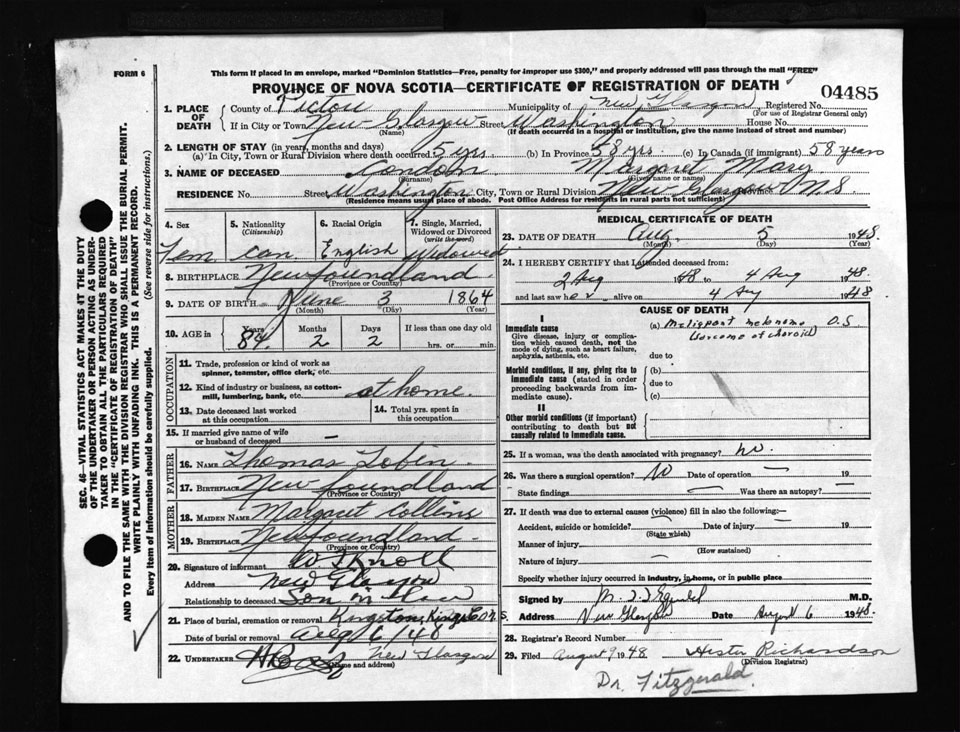 FORM 6
This form if placed in an envelope, marked "Dominion Statistics—Free, penalty for improper use $300," and properly addressed will pass through the mail "FREE"
PROVINCE OF NOVA SCOTIA—CERTIFICATE OF REGISTRATION OF DEATH
04485
1. PLACE OF DEATH
County of Pictou Municipality of New Glasgow Registered No.
(For use of Registrar General only)
If in City or Town New Glasgow Street Washington House No.
(Name) (If death occurred in a hospital or institution, give the name instead of street and number)
2. LENGTH OF STAY (in years, months and days)
(a) In City, Town or Rural Division where death occurred 5 yrs. (b) In Province 58 yrs. (c) In Canada (if immigrant) 58 years
3. NAME OF DECEASED Condon Margaret Mary
(Surname) (Given name or names)
RESIDENCE No. Street Washington City, Town or Rural Division New Glasgow N.S.
(Residence means usual place of abode. Post Office Address for residents in rural parts not sufficient)
4. Sex
Fem
5. Nationality
(Citizenship)
can.
6. Racial Origin
English
7. Single, Married, Widowed or Divorced
(write the word)
Widowed
8. BIRTHPLACE Newfoundland
(Province or Country)
9. DATE OF BIRTH June 3 1864
(Month) (Day) (Year)
10. AGE in
Years Months Days If less than one day old
84 2 2 hrs. or min.
OCCUPATION
11. Trade, profession or kind of work as
spinner, teamster, office clerk, etc.
12. Kind of industry or business, as cotton-
mill, lumbering, bank, etc. at home.
13. Date deceased last worked
at this occupation
14. Total yrs. spent in
this occupation
15. If married give name of wife
or husband of deceased —
FATHER
16. NAME Thomas Tobin
17. BIRTHPLACE Newfoundland
(Province or Country)
MOTHER
18. MAIDEN NAME Margaret Collins
19. BIRTHPLACE Newfoundland
(Province or Country)
20. Signature of informant Knoll
Address New Glasgow
Relationship to deceased Son in law
21. Place of burial, cremation or removal Kingston, Kings Co N.S.
Date of burial or removal Aug 6/48
22. UNDERTAKER New Glasgow
(Name and address)
MEDICAL CERTIFICATE OF DEATH
23. DATE OF DEATH Aug. 5 1948
(Month) (Day) (Year)
24. I HEREBY CERTIFY that I attended deceased from
2 Aug 48 to 4 Aug 1948
and last saw her alive on 4 Aug 1948
CAUSE OF DEATH
I
Immediate cause
Give disease, injury or complication which caused death, not the mode of dying, such as heart failure, asphyxia, asthenia, etc.
(a) Malignant melanoma O.S
(sarcoma of choroid)
due to
Morbid conditions, if any, giving rise to immediate cause (stated in order proceeding backwards from immediate cause).
(b)
due to
(c)
II
Other morbid conditions (if important) contributing to death but not causally related to immediate cause.
25. If a woman, was the death associated with pregnancy? no.
26. Was there a surgical operation? No Date of operation — 19
State findings — Was there an autopsy? —
27. If death was due to external causes (violence) fill in also the following:—
Accident, suicide or homicide? Date of injury — 19
(State which)
Manner of injury
(How sustained)
Nature of injury —
Specify whether injury occurred in industry, in home, or in public place
Signed by M.D.
Address New Glasgow Date August 6 1948.
28. Registrar's Record Number
29. Filed August 9 1948 Hester Richardson
(Division Registrar)
Dr. Fitzgerald
SEC. 46—VITAL STATISTICS ACT MAKES IT THE DUTY
OF THE UNDERTAKER OR PERSON ACTING AS UNDER-
TAKER TO OBTAIN ALL THE PARTICULARS REQUIRED
IN THE "CERTIFICATE OF REGISTRATION OF DEATH"
AND TO FILE THE SAME WITH THE DIVISION REGISTRAR WHO SHALL ISSUE THE BURIAL PERMIT.
WRITE PLAINLY WITH UNFADING INK. THIS IS A PERMANENT RECORD.
Every item of information should be carefully supplied. (See reverse side for instructions.)